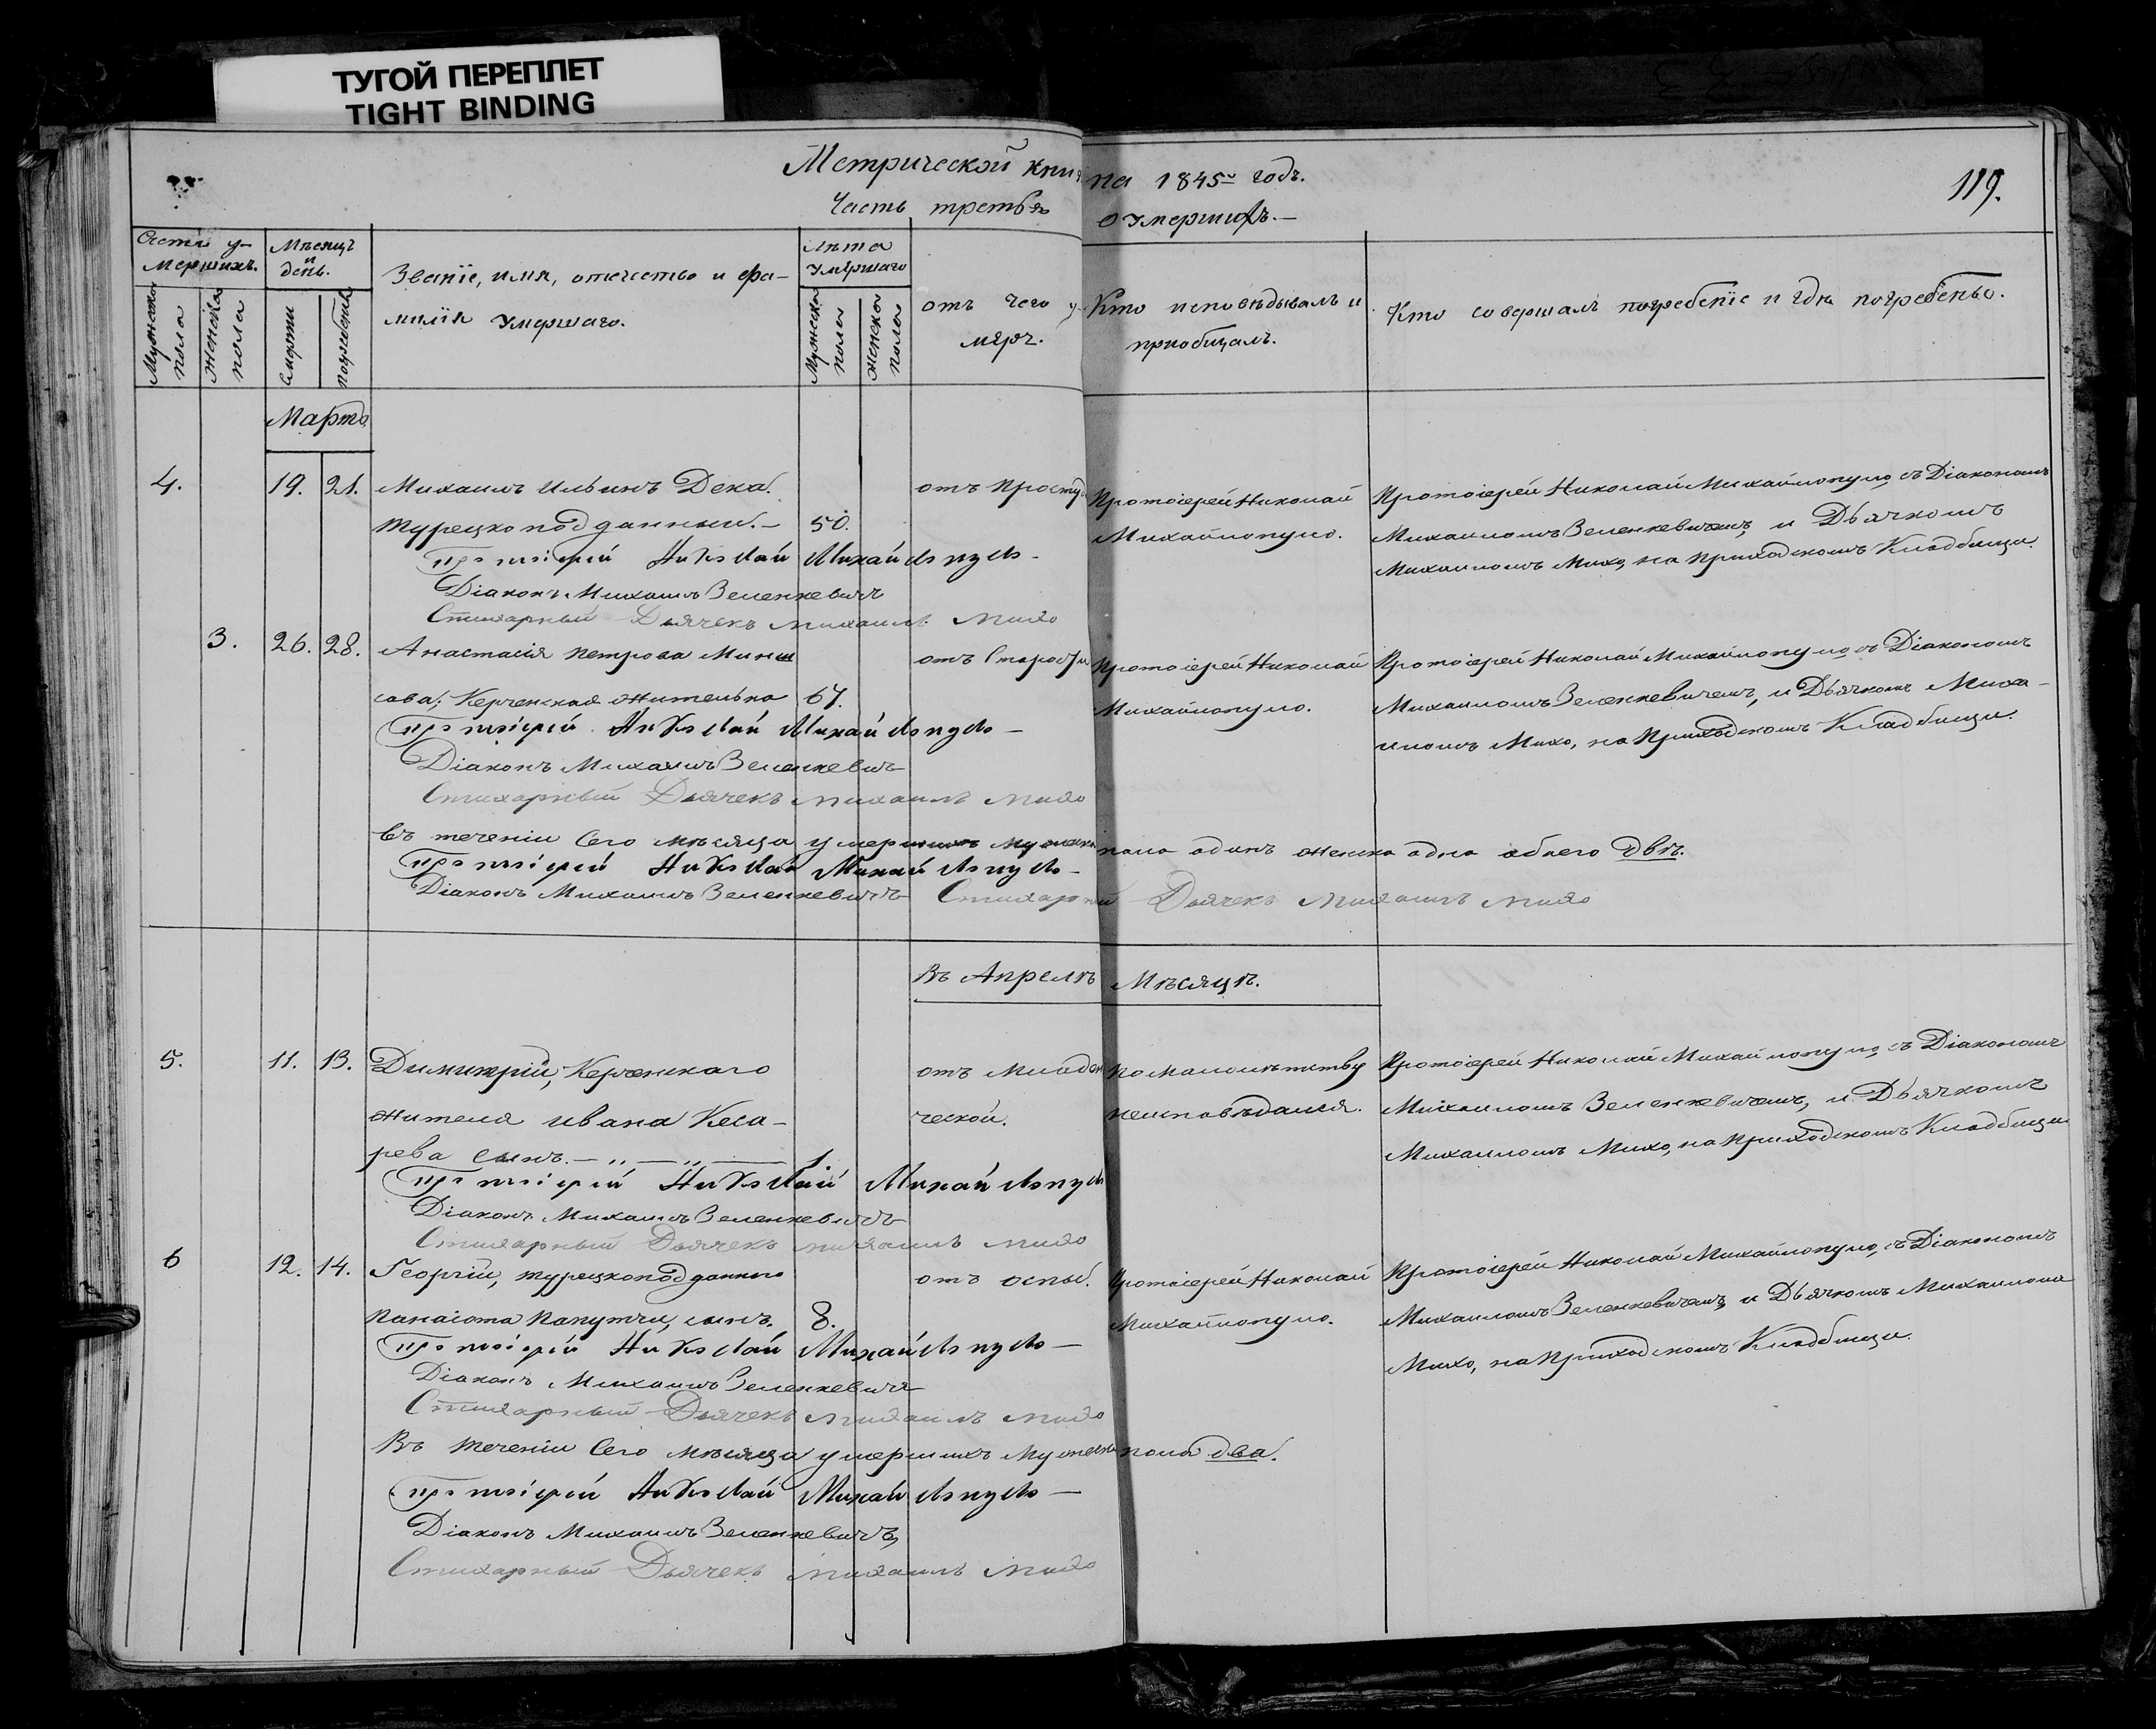 ТУГОЙ ПЕРЕПЛЕТ
TIGHT BINDING
Метрической книги на 1845й годъ.
119.
Часть третья о умершихъ.—
Счетъ у-
мершихъ.
Мужеска
пола
Женска
пола
Мѣсяцъ
и
день.
Смерти
погребенія
Званіе, имя, отечество и фа-
милія Умершаго.
лѣта
Умершаго
Мужеска
пола
Женска
пола
отъ чего у-
меръ.
Кто исповѣдывалъ и
пріобщалъ.
Кто совершалъ погребеніе и гдѣ погребены.
Марта
4. 19. 21. Михаилъ Ильинъ Дека. отъ Простуды Протоіерей Николай Протоіерей Николай Михайлопуло, съ Діакономъ
турецкоподданный.— 50. Михайлопуло. Михаиломъ Зеленкевичемъ, и Дьячкомъ
Михаиломъ Михо, на приходскомъ Кладбищи.
Протоіерей Николай Михайлопуло—
Діаконъ Михаилъ Зеленкевичъ
Стихарный Дьячекъ Михаилъ Михо
3. 26. 28. Анастасія Петрова отъ Старости Протоіерей Николай Протоіерей Николай Михайлопуло съ Діакономъ
сова, Керченская жителька 67. Михайлопуло. Михаиломъ Зеленкевичемъ, и Дьячкомъ Миха-
иломъ Михо, на Приходскомъ Кладбищи.
Протоіерей Николай Михайлопуло—
Діаконъ Михаилъ Зеленкевичъ
Стихарный Дьячекъ Михаилъ Михо
въ теченіи Сего мѣсяца умершихъ мужеска пола одинъ женска одна обоего двѣ.
Протоіерей Николай Михайлопуло—
Діаконъ Михаилъ Зеленкевичъ Стихарный Дьячекъ Михаилъ Михо
Въ Апрелѣ Мѣсяцѣ.
5. 11. 13. Димитрій, Керченскаго отъ Младен по малолѣтству Протоіерей Николай Михайлопуло, съ Діакономъ
жителя Ивана Кеса- ческой. неисповѣдался. Михаиломъ Зеленкевичемъ, и Дьячкомъ
рева сынъ.— „ — „ — 1. Михаиломъ Михо, на Приходскомъ Кладбищи
Протоіерей Николай Михайлопуло
Діаконъ Михаилъ Зеленкевичъ
Стихарный Дьячекъ Михаилъ Михо
6 12. 14. Георгій, турецкоподданнаго отъ оспы. Протоіерей Николай Протоіерей Николай Михайлопуло, съ Діакономъ
Панаіота сынъ. 8. Михайлопуло. Михаиломъ Зеленкевичемъ, и Дьячкомъ Михаиломъ
Михо, на Приходскомъ Кладбищи.
Протоіерей Николай Михайлопуло—
Діаконъ Михаилъ Зеленкевичъ
Стихарный Дьячекъ Михаилъ Михо
Въ теченіи Сего мѣсяца умершихъ Мужеска пола два.
Протоіерей Николай Михайлопуло—
Діаконъ Михаилъ Зеленкевичъ
Стихарный Дьячекъ Михаилъ Михо